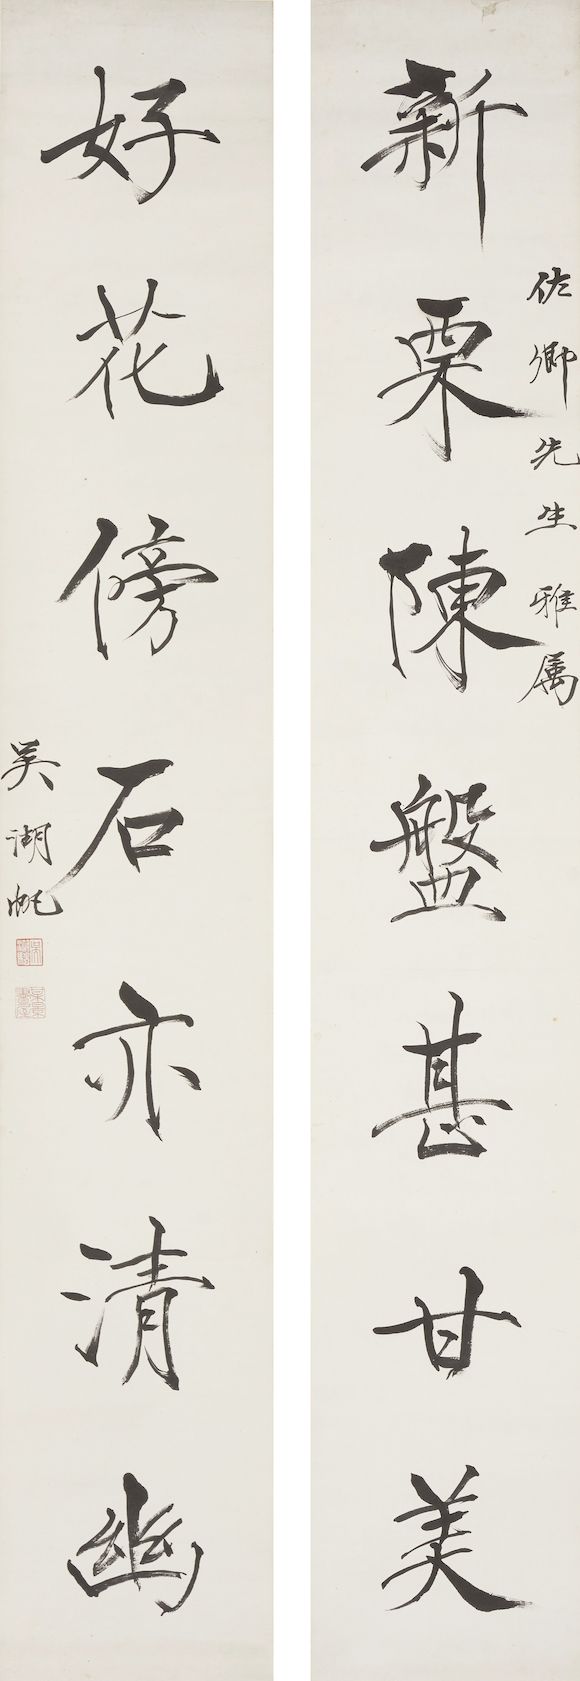 新栗陳盤甚甘美
佐卿先生雅属
好花傍石亦清幽
吳湖帆